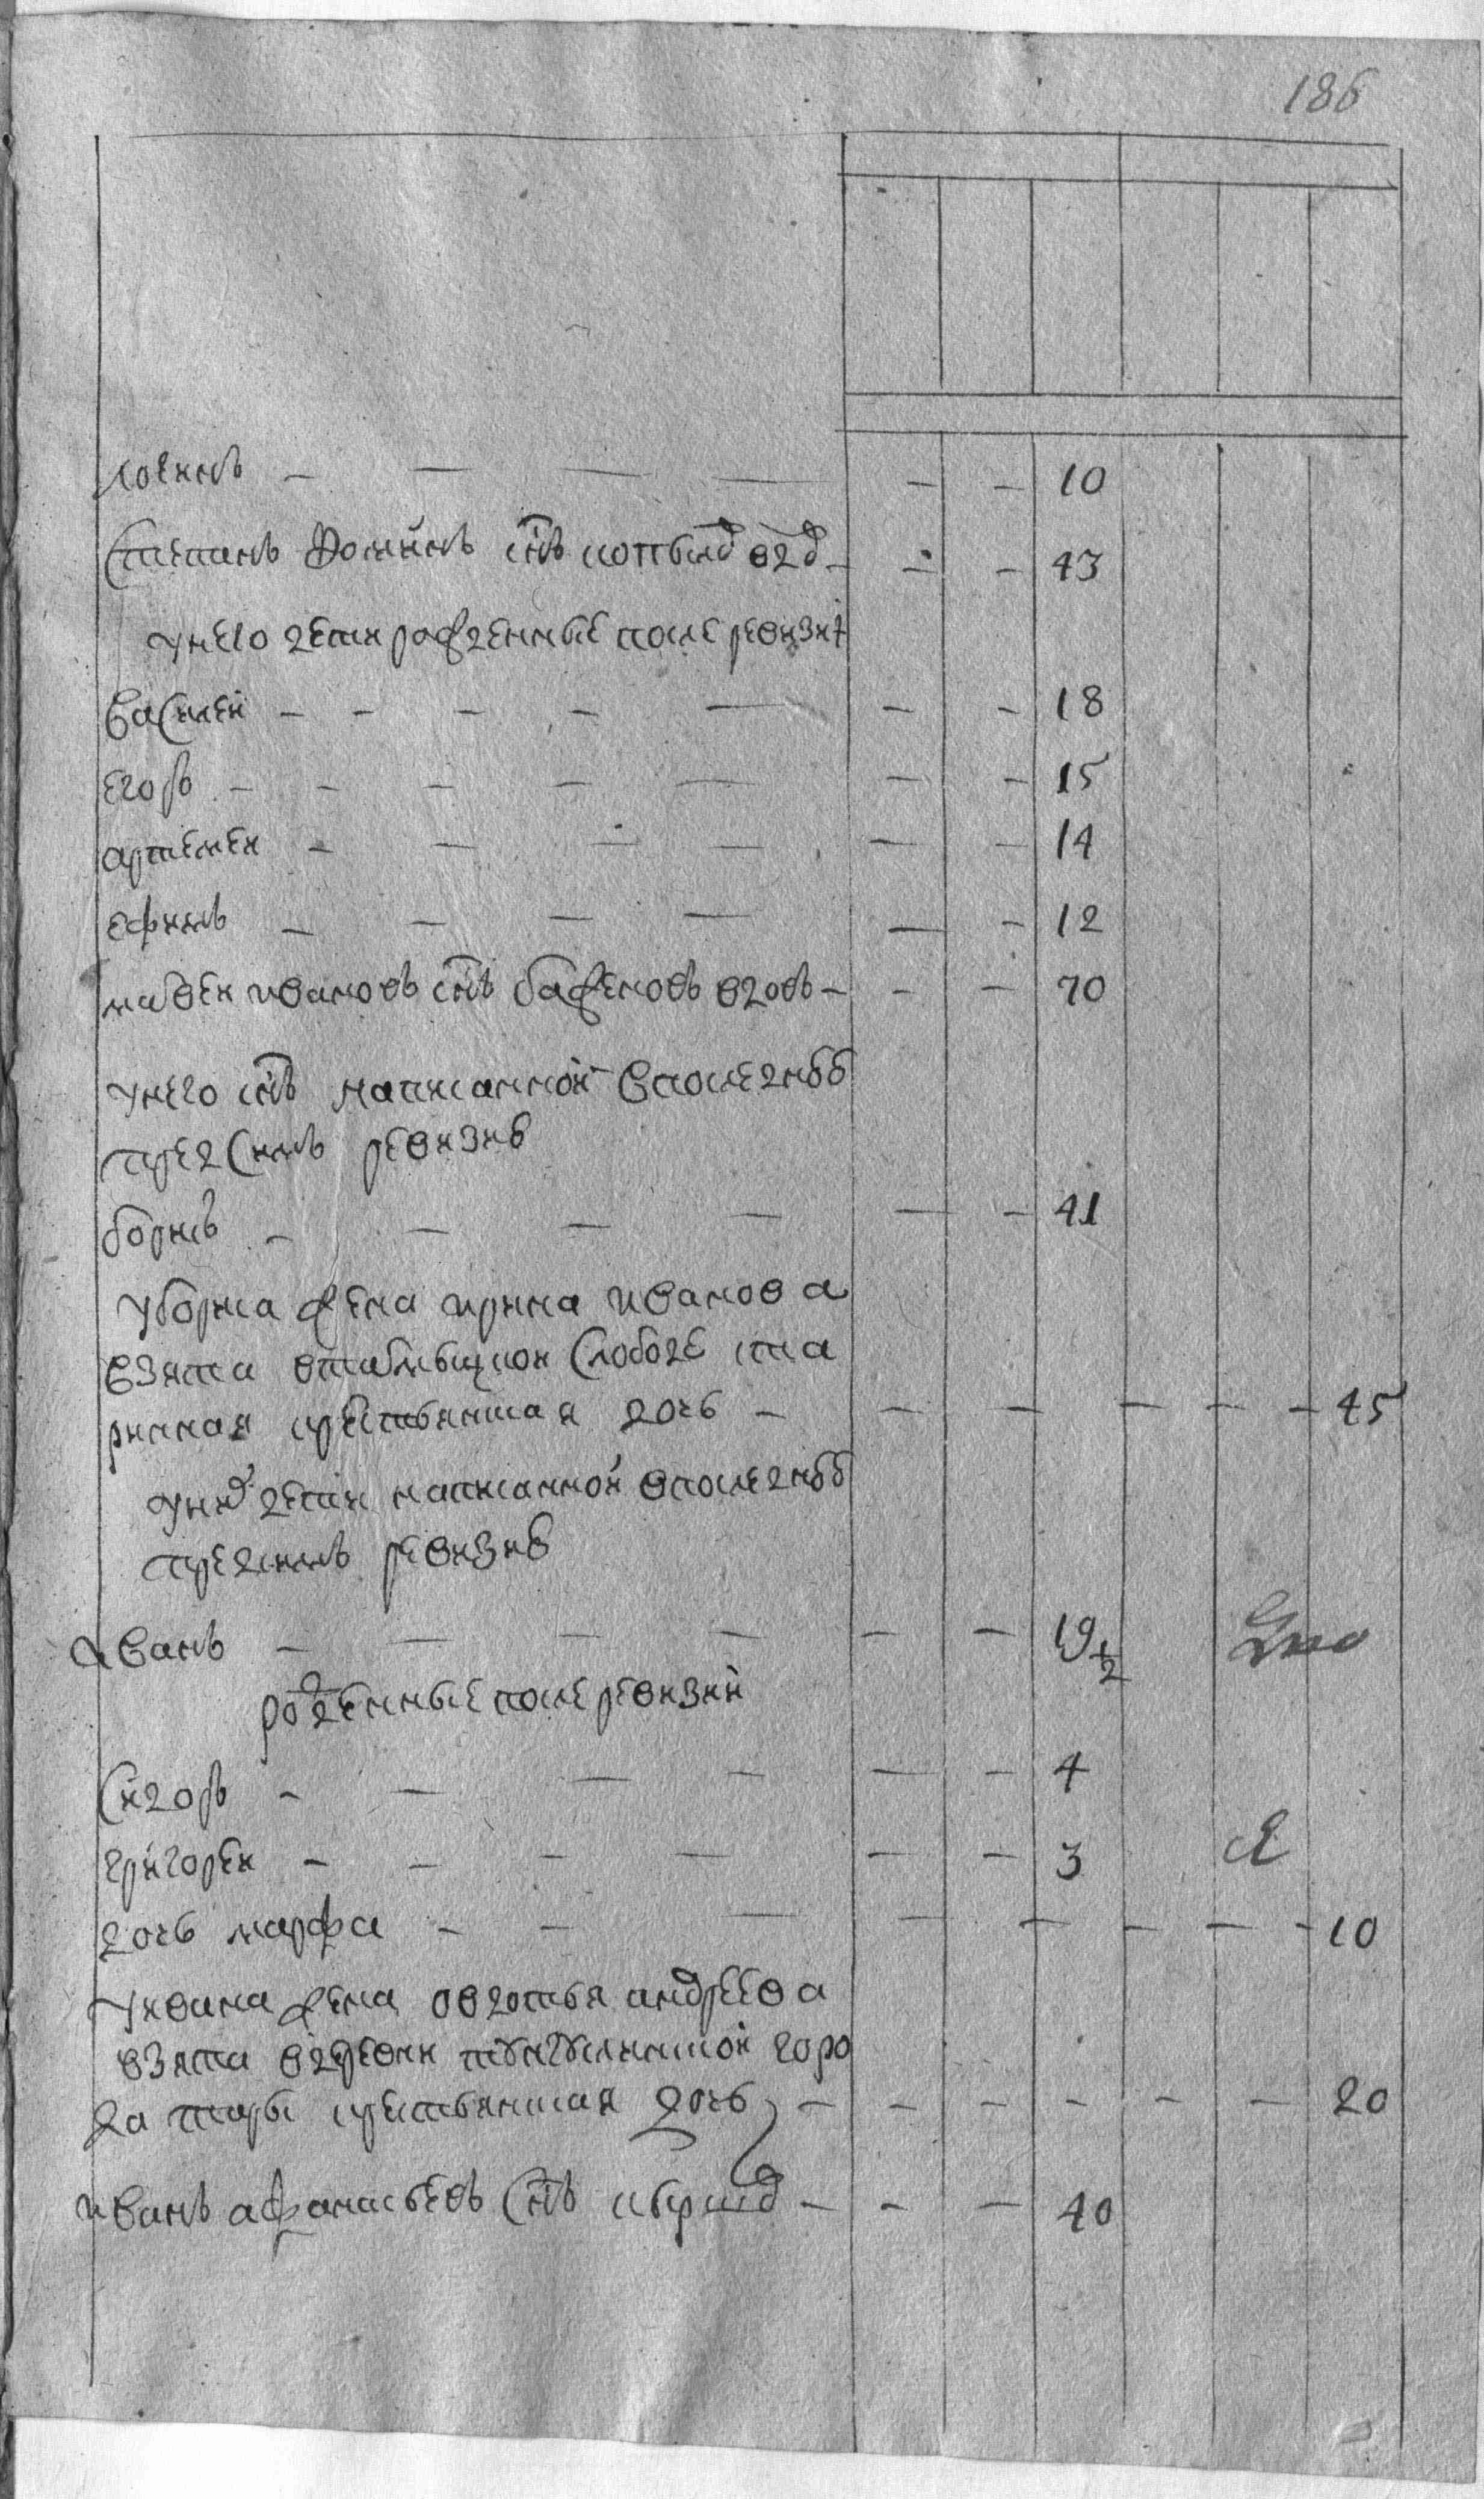 186
логинъ — — — — — — 10
степанъ фоминъ снъ копы вдо — — — 43
унего дети рожденные после ревизи
василеи — — — — — — — 18
егоръ — — — — — — — 15
артемеи — — — — — — 14
ефимъ — — — — — — 12
матвеи ивановъ снъ баженовъ вдовъ — — — 70
унего снъ написанной впоследнюю
пред симъ ревизию
борисъ — — — — — — 41
убориса жена ирина иванова
взята стаб слободе ста
ринная крестьянская дочь — — — — — — 45
унихъ дети написанной впоследнюю
предсимъ ревизию
иванъ — — — — — — 19 1/2
рожденные после ревизии
сидоръ — — — — — — 4
григореи — — — — — — 3
дочь марфа — — — — — — — — 10
уивана жена овдотья андреева
взята вдеревни горо
да тары крестьянская дочь — — — — — — 20
иванъ афанасьевъ снъ — — — 40